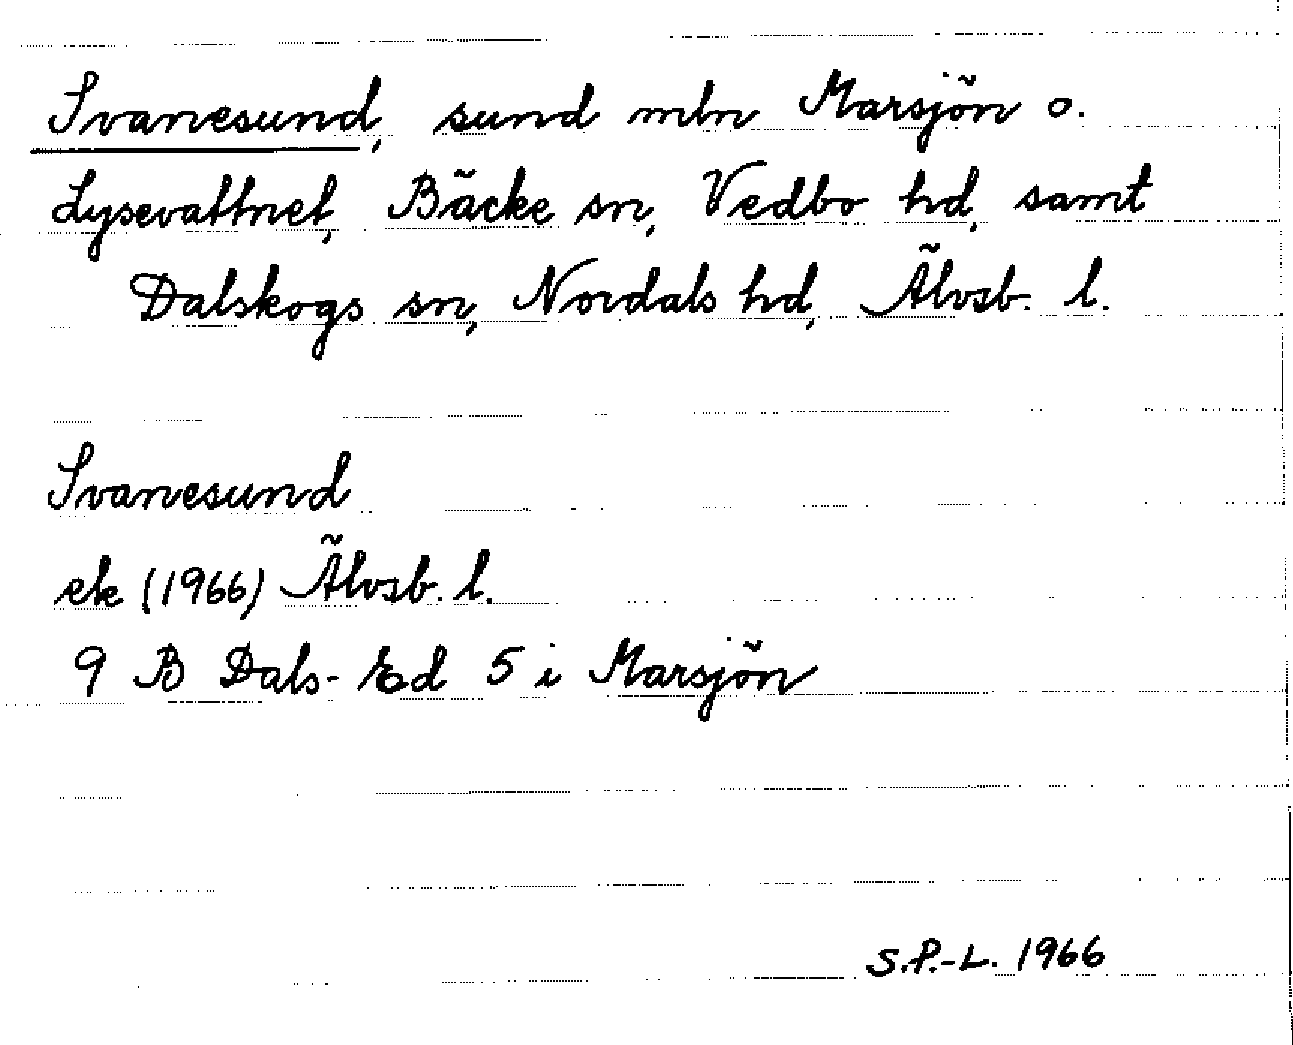 Svanesund, sund mln Marsjön o.
Lysevattnet, Bäcke sn, Vedbo hd, samt
Dalskogs sn, Nordals hd, Älvsb. l.
Svanesund
ek (1966) Älvsb. l.
9 B Dals-Ed 5 i Marsjön
S.P.-L. 1966